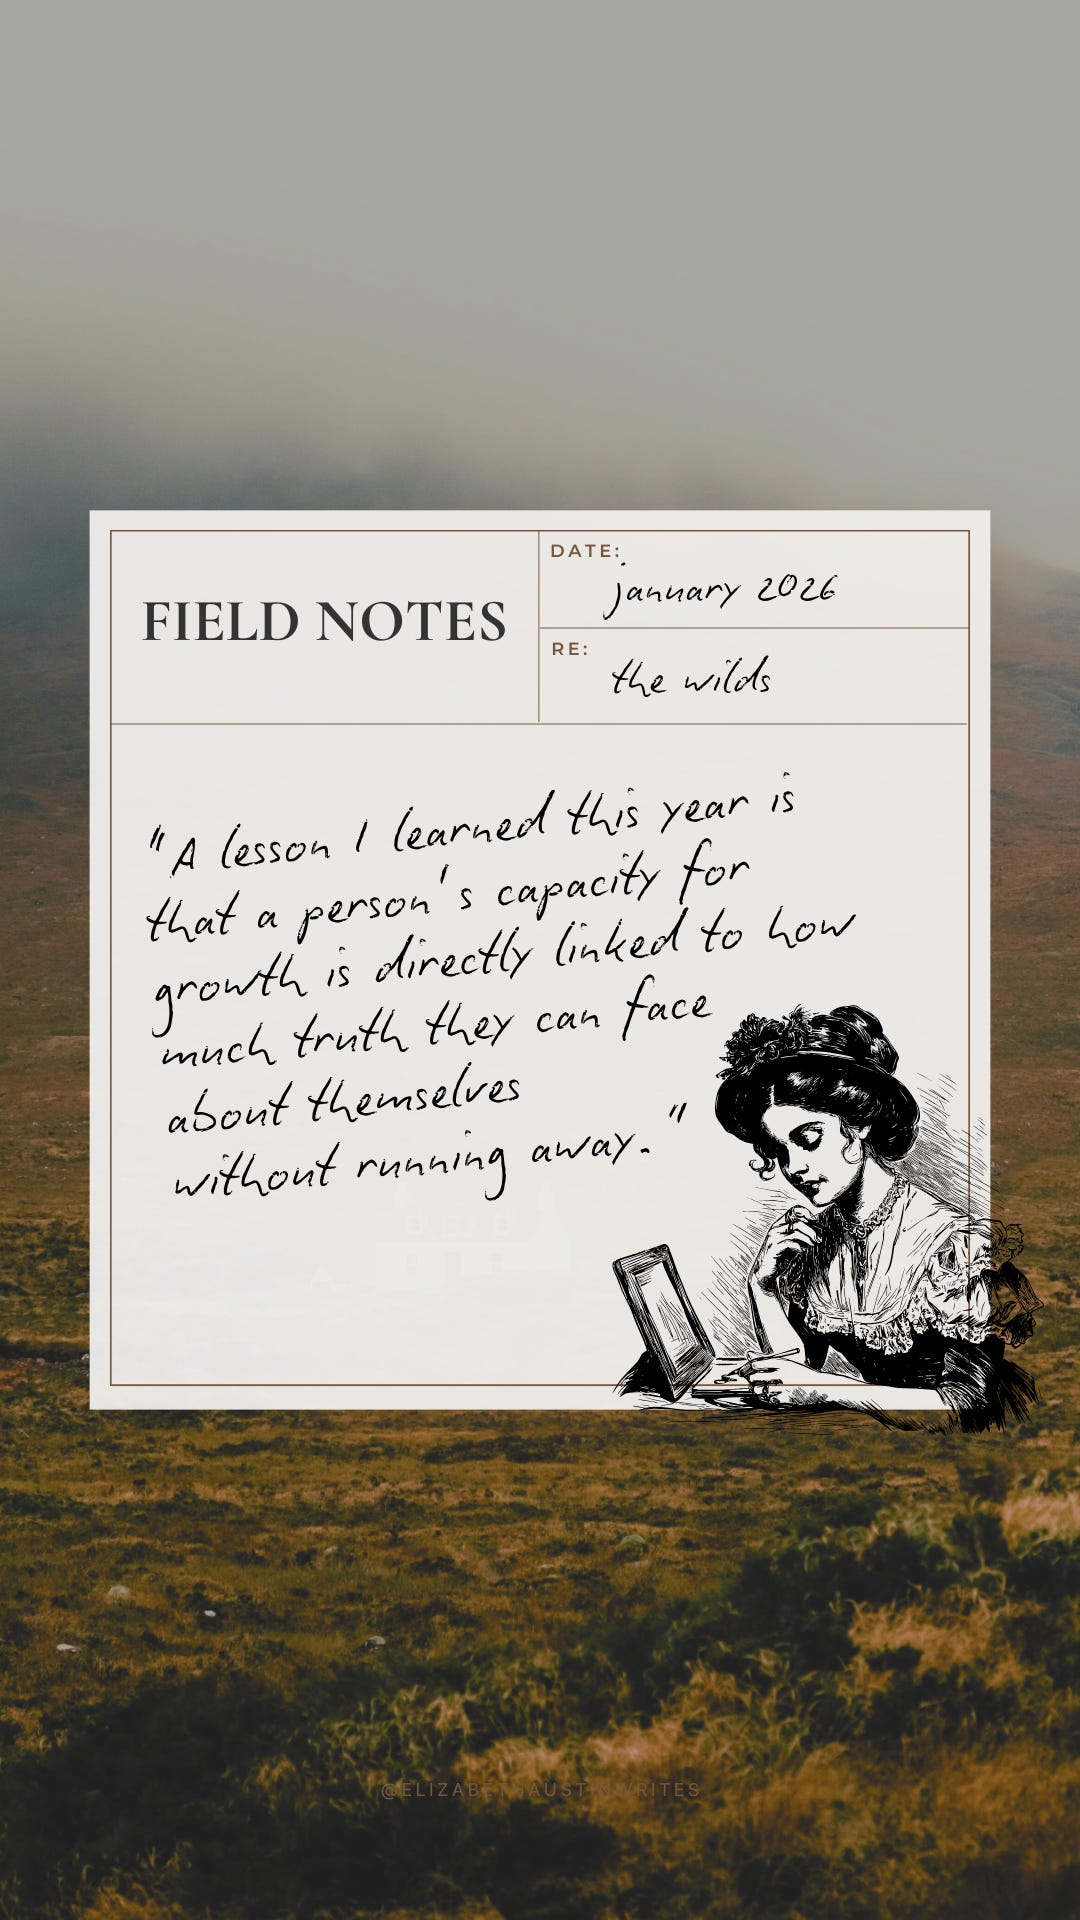 FIELD NOTES
DATE:
january 2026
RE:
the wilds
"A lesson I learned this year is
that a person's capacity for
growth is directly linked to how
much truth they can face
about themselves
without running away."
@ELIZABETHAUSTINWRITES